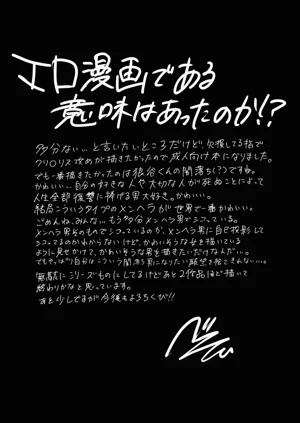 エロ漫画である
意味はあったのか!?
多分ない…と言いたいところだけど、欠損してる指で
クリ〇リス攻めが描きたかったので成人向け本になりました。
でも一番描きたかったのは狼谷くんの闇落ち(?)ですね。
かわいい…自分の好きな人や大切な人が死ぬことによって
人生全部復讐に捧げる男大好き。かわいい。
結局こういうタイプのメンヘラが世界で一番かわいい。
ごめんね、みんな…もう多分メンヘラ男でシコっている。
メンヘラ男そのものでシコっているのか、メンヘラ男に自己投影して
シコってるのかわからないけど、かわいそうな女を描いている
ように見せかけて、かわいそうな男を描きたいだけなんだ…。
でもやっぱり自分はこういう闇落ち男になりたい願望を捨てきれない…。
無駄にシリーズものにしてるけどあと2作品ほど描いて
終わりかなと思っています。
あと少しですが今後もよろしくび!!